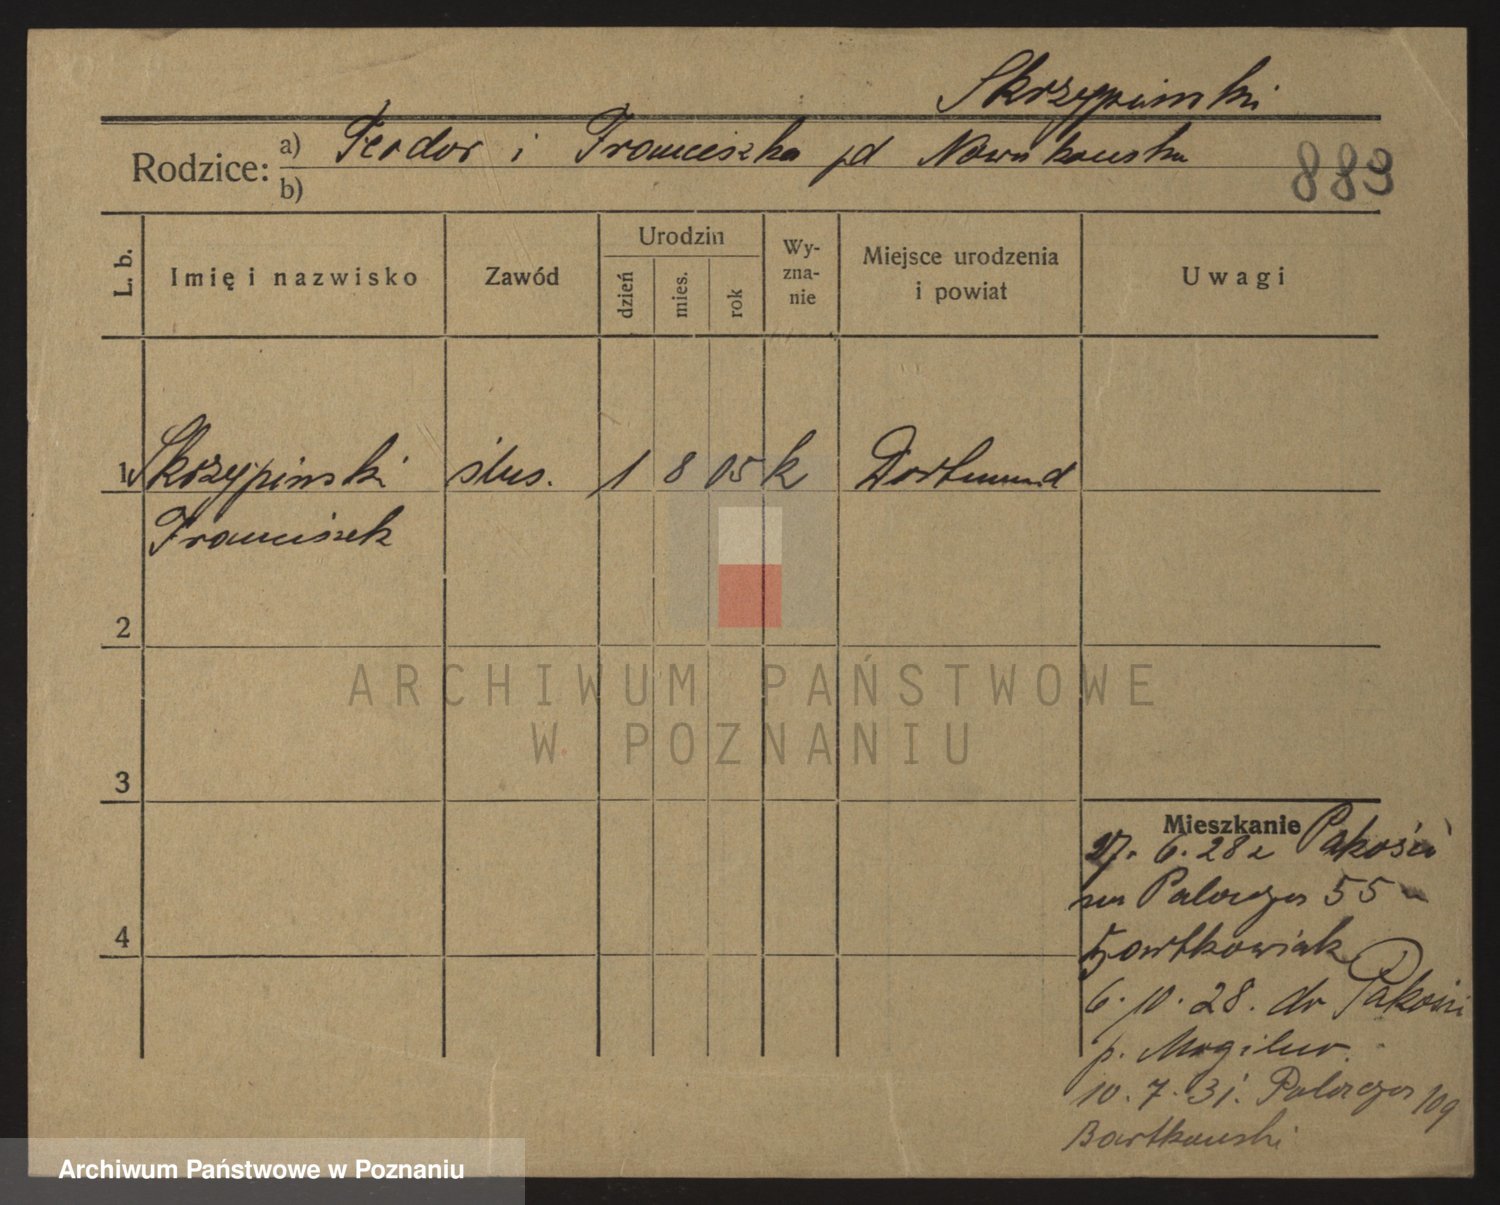 Skrzypinski
Rodzice: a) Teodor i Franciszka pd Nowakowska
b)
889
L. b.
Imię i nazwisko
Zawód
Urodzin
dzień
mies.
rok
Wy-
zna-
nie
Miejsce urodzenia
i powiat
Uwagi
1 Skrzypinski ślus. 1 8 05 k Dortmund
Franciszek
2
ARCHIWUM PAŃSTWOWE
W POZNANIU
3
Mieszkanie
27. 6. 28 z Pakości
na Palacza 55
Bartkowiak
6. 10. 28. do Pakości
p. Mogilno.
10. 7. 31. Palacza 109
Bartkowski
4
Archiwum Państwowe w Poznaniu